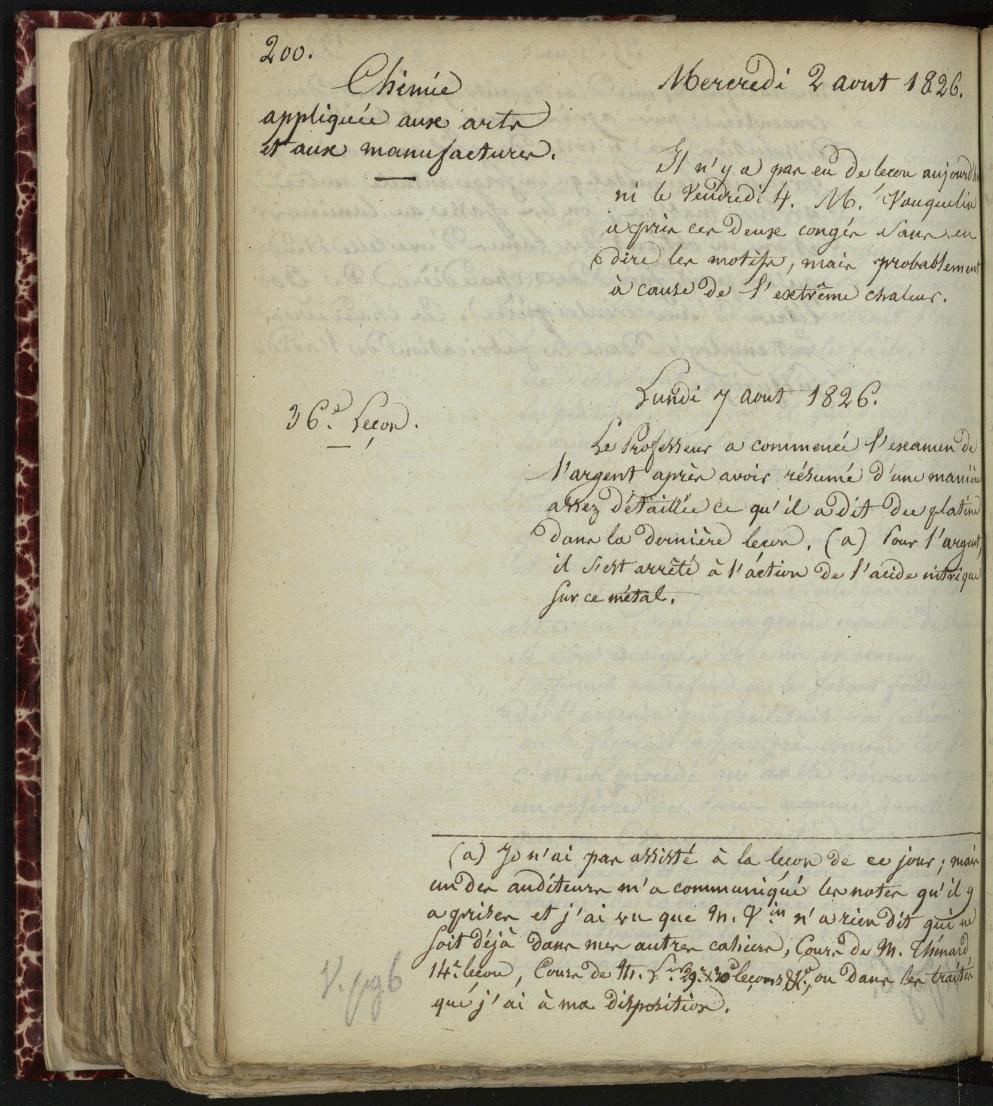 200.
Chimie
appliquée aux arts
et aux manufactures.
Mercredi 2 aout 1826.
Il n'y a pas eu de leçon aujourd'h
ni le Vendredi 4. M. Vauquelin
a pris ces deux congés sans en
dire les motifs, mais probablement
à cause de l'extrême chaleur.
Lundi 7 aout 1826.
36.e Leçon.
Le Professeur a commencé l'examen de
l'argent après avoir résumé d'une manière
assez détaillée ce qu'il a dit du platine
dans la dernière leçon. (a) Pour l'argent,
il s'est arrêté à l'action de l'acide nitrique
sur ce métal.
(a) Je n'ai pas assisté à la leçon de ce jour; mais
un des auditeurs m'a communiqué les notes qu'il y
a prises et j'ai vu que M. V.in n'a rien dit qui ne
soit déjà dans mes autres cahiers, Cours de M. Thénard
14.e leçon, Cours de M. 29.e & 30.e leçons &c., ou dans les traités
que j'ai à ma disposition.
V. pg 6